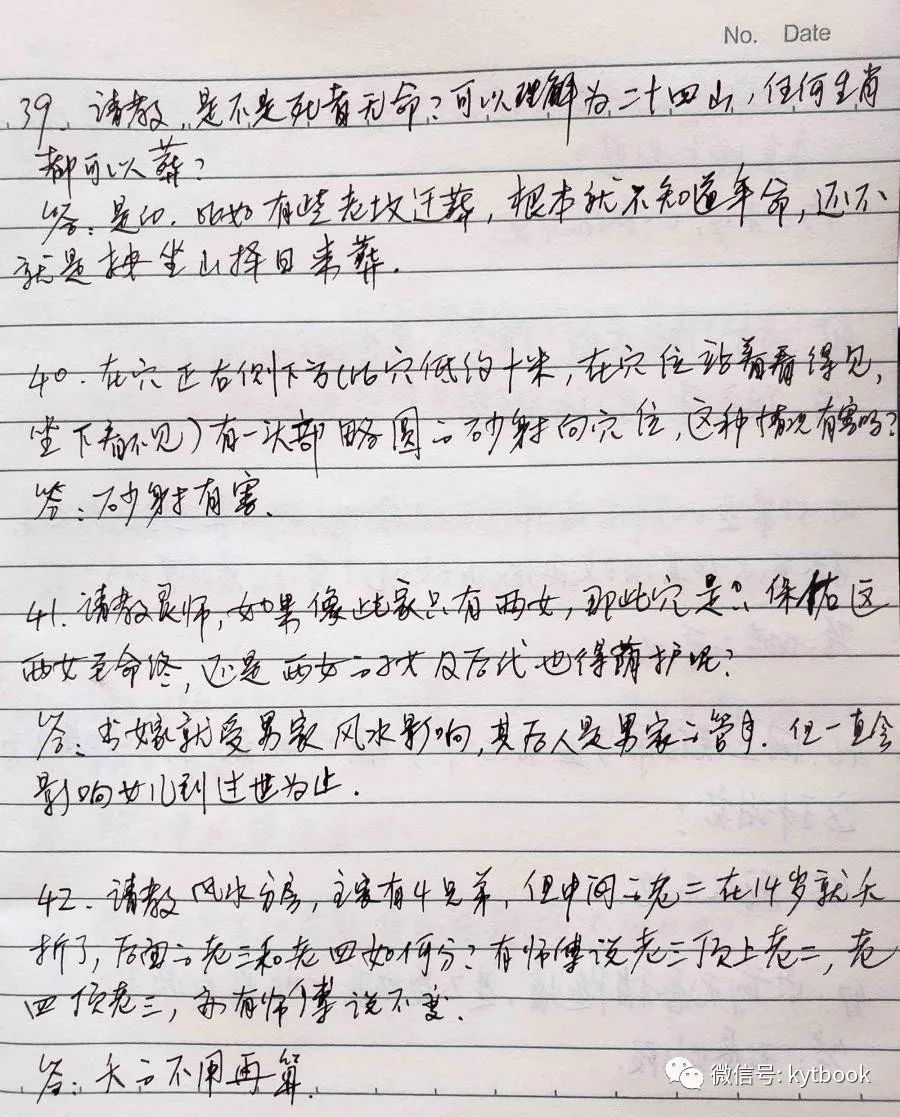 No. Date
39. 请教，是不是死者无命？可以理解为二十四山，任何生肖
都可以葬？
答：是的．比如有些老坟迁葬，根本就不知道年命，还不
就是按坐山择日来葬．
40．在穴正右侧下方(比穴低约十米，在穴位站着看得见，
坐下看不见)有一头部略圆的砂射向穴位，这种情况有害吗？
答：砂射有害．
41．请教良师，如果像此家只有两女，那此穴是只保佑这
两女至命终，还是两女的子女及后代也得荫护呢？
答：出嫁就受男家风水影响，其后人是男家的管．但一直会
影响女儿到过世为止．
42．请教风水分房，主家有4兄弟，但中间的老二在14岁就夭
折了，后面的老三和老四如何分？有师傅说老三顶上老二，老
四顶老三，亦有师傅说不变．
答：夭的不用再算．
微信号: kytbook